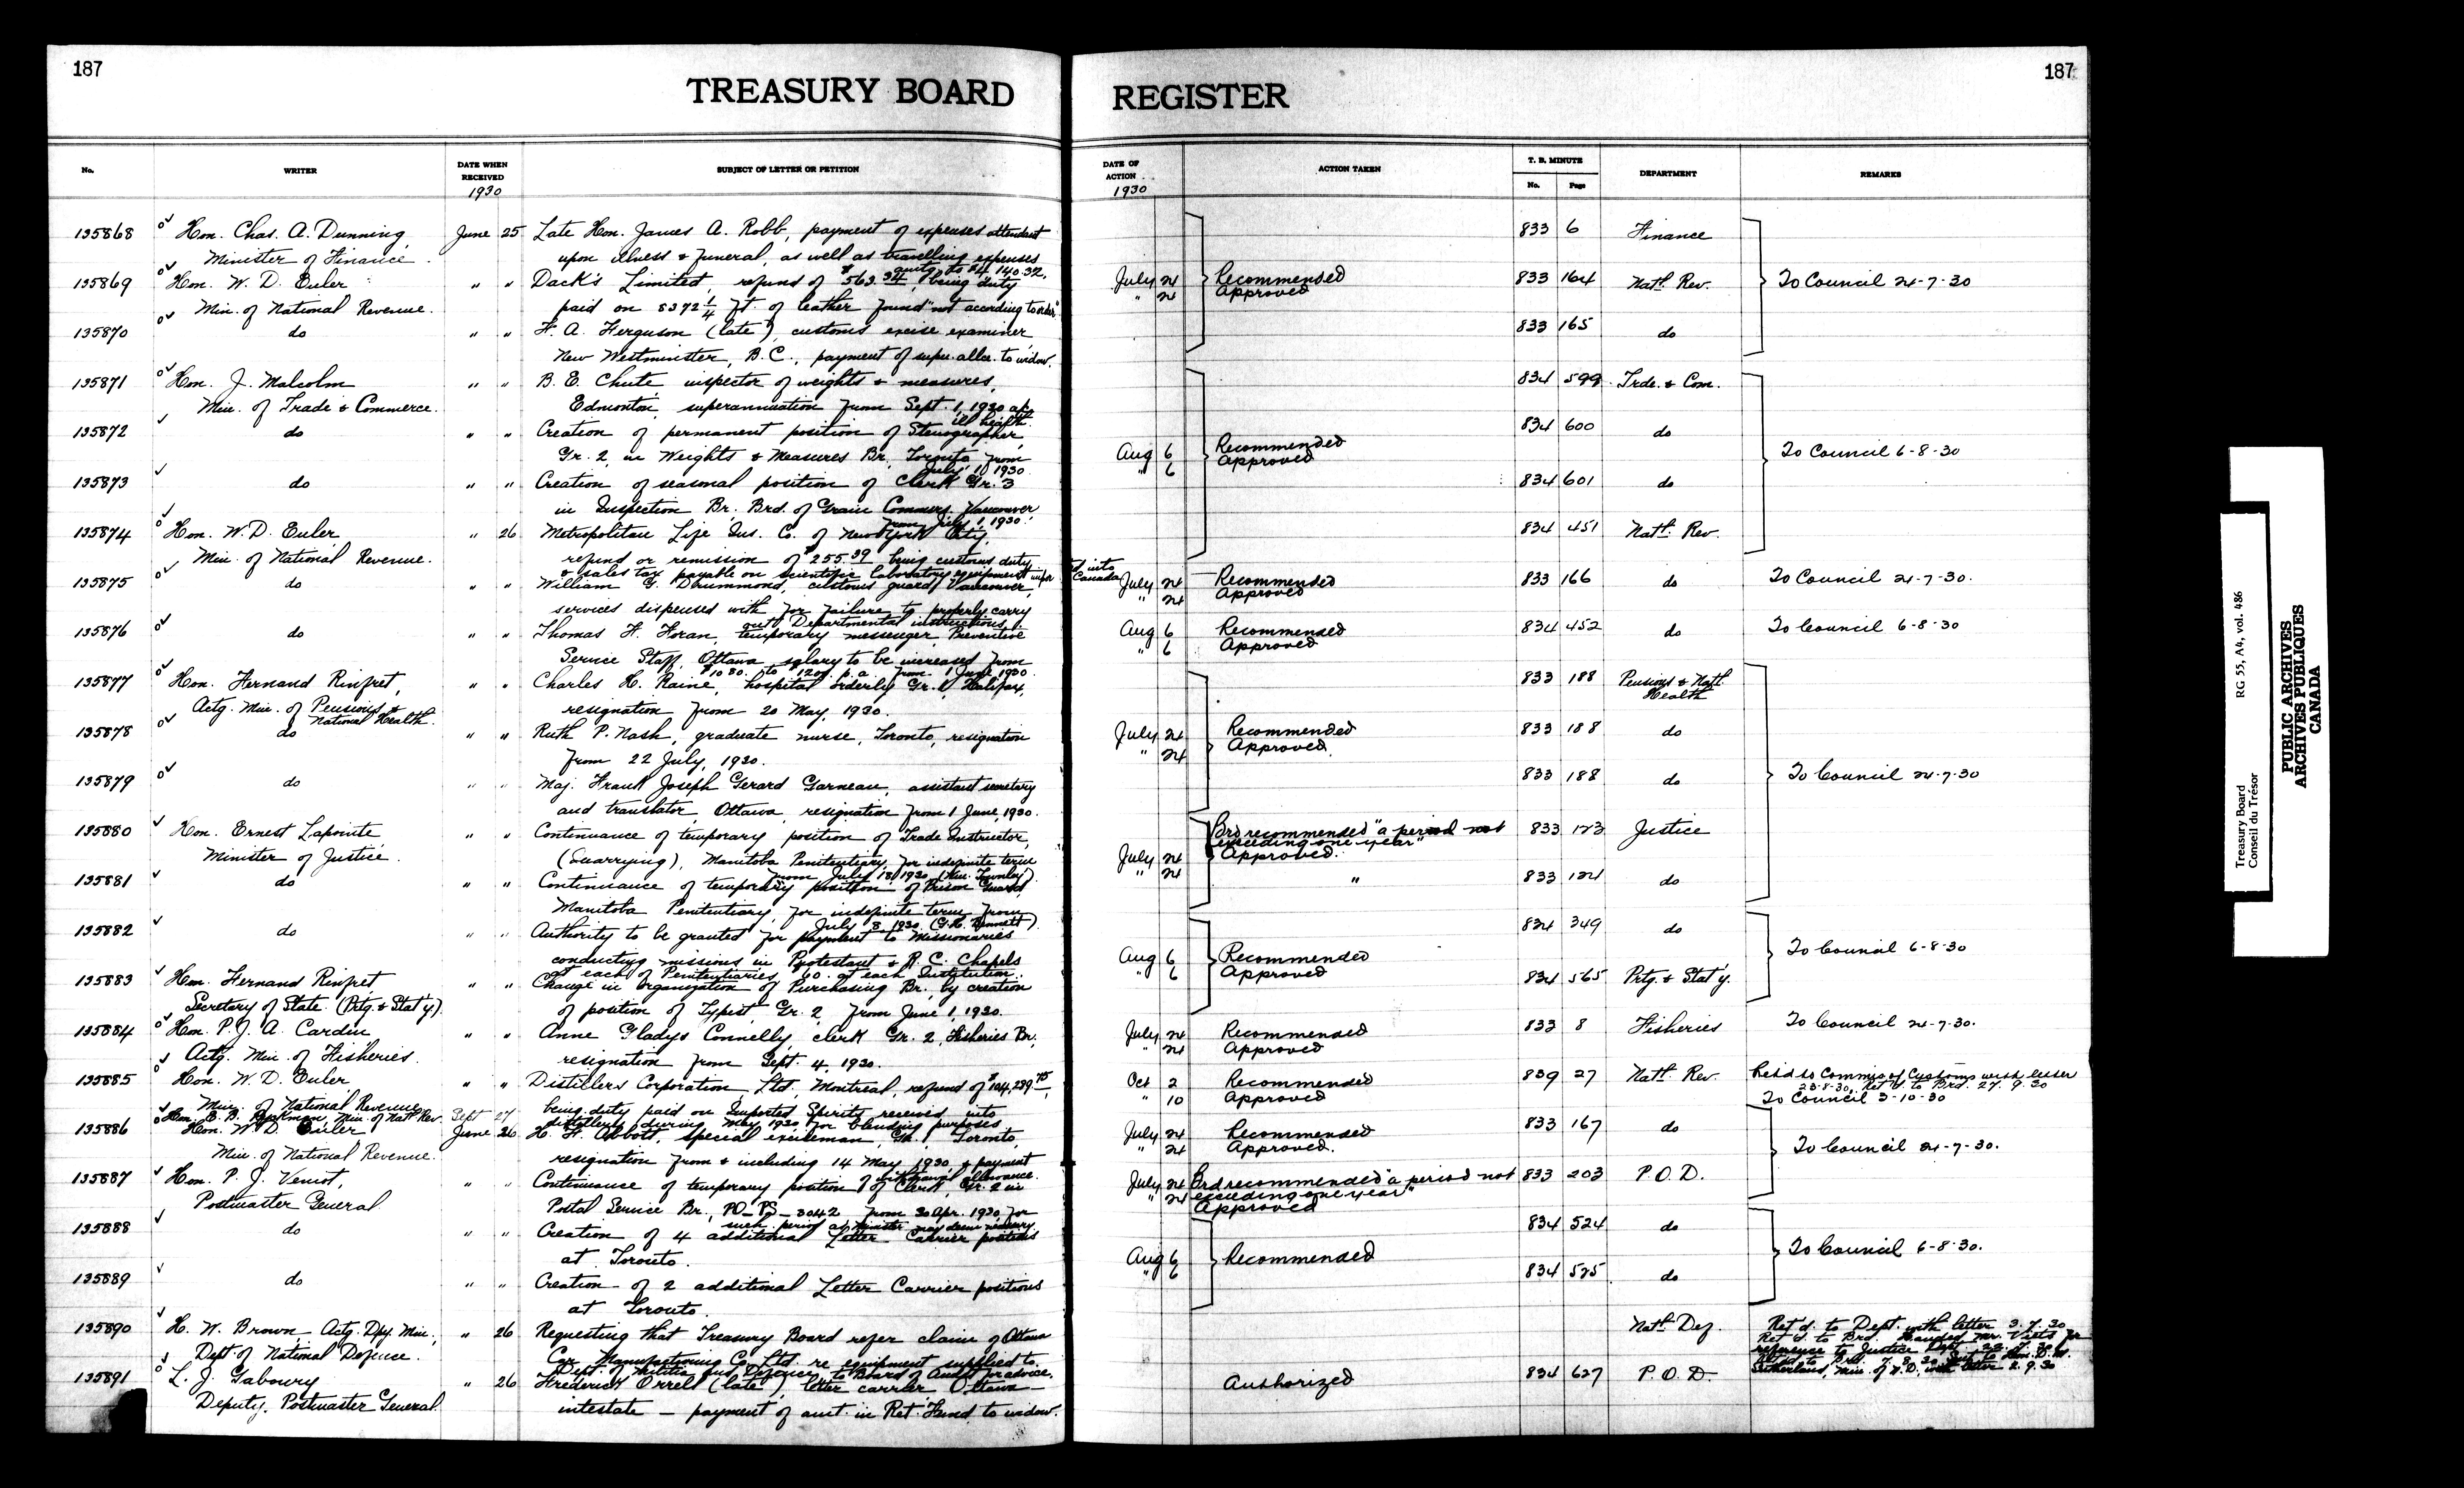 187
TREASURY BOARD
No.
WRITER
DATE WHEN RECEIVED
1930
SUBJECT OF LETTER OR PETITION
135868 Hon. Chas. A. Dunning, June 25 Late Hon. James A. Robb, payment of expenses attendant
Minister of Finance. upon illness & funeral, as well as travelling expenses
amtg. to $4140.32.
135869 Hon. W. D. Euler " " Dack's Limited, refund of $563.34, being duty
Min. of National Revenue. paid on 5372 1/4 ft. of leather found "not according to order"
135870 do " " F. A. Ferguson (late), customs excise examiner
New Westminster, B.C., payment of super. allce. to widow.
135871 Hon. J. Malcolm " " B. E. Chute, inspector of weights & measures,
Min. of Trade & Commerce. Edmonton, superannuation from Sept. 1, 1930 a/c
ill health.
135872 do " " Creation of permanent position of Stenographer,
Gr. 2, in Weights & Measures Br., Toronto from
July 1, 1930.
135873 do " " Creation of seasonal position of Clerk Gr. 3
in Inspection Br. Brd. of Grain Commrs. Vancouver
from July 1, 1930.
135874 Hon. W. D. Euler " 26 Metropolitan Life Ins. Co. of New York City,
Min. of National Revenue. refund or remission of $255.39 being customs duty
& sales tax payable on scientific laboratory equipment
135875 do " " William G. Drummond, customs guard, Vancouver,
services dispensed with for failure to properly carry
out Departmental instructions.
135876 do " " Thomas F. Horan, temporary messenger, Preventive
Service Staff, Ottawa, salary to be increased from
$1080. to $1200. p.a. from 1 June, 1930.
135877 Hon. Fernand Rinfret, " " Charles H. Raine, hospital orderly Gr. 1, Halifax,
Actg. Min. of Pensions & National Health. resignation from 20 May, 1930.
135878 do " " Ruth P. Nash, graduate nurse, Toronto, resignation
from 22 July, 1930.
135879 do " " Maj. Frank Joseph Gerard Garneau, assistant secretary
and translator, Ottawa, resignation from 1 June, 1930.
135880 Hon. Ernest Lapointe " " Continuance of temporary position of Trade Instructor,
Minister of Justice. (Quarrying), Manitoba Penitentiary, for indefinite term
from July 18, 1930
135881 do " " Continuance of temporary position of Prison Guard,
Manitoba Penitentiary, for indefinite term from
July 3, 1930. (G. R. Bennett).
135882 do " " Authority to be granted for payment to Missionaries
conducting missions in Protestant & R. C. Chapels
at each of Penitentiaries, $60. at each Institution.
135883 Hon. Fernand Rinfret " " Change in organization of Purchasing Br., by creation
Secretary of State (Prtg. & Stat'y). of position of Typist Gr. 2 from June 1, 1930.
135884 Hon. P. J. A. Cardin " " Anne Gladys Connelly, clerk Gr. 2, Fisheries Br.
Actg. Min. of Fisheries. resignation from Sept. 4, 1930.
135885 Hon. W. D. Euler " " Distillers Corporation Ltd., Montreal, refund of
Min. of National Revenue being duty paid on Imported Spirits received into
Min. of Nat'l Rev. Sept 27 distillery during May 1930 for blending purposes
135886 Hon. W. D. Euler June 26 H. F. Abbott, special exciseman, Gr. 1, Toronto,
Min. of National Revenue. resignation from & including 14 May, 1930, & payment
of withdrawal allowance.
135887 Hon. P. J. Veniot, " " Continuance of temporary position of Clerk, Gr. 2 in
Postmaster General Postal Service Br., PO-PS-3042 from 30 Apr. 1930, for
such period as Minister may deem necessary.
135888 do " " Creation of 4 additional Letter Carrier positions
at Toronto.
135889 do " " Creation of 2 additional Letter Carrier positions
at Toronto.
135890 H. W. Brown, Actg. Dpy. Min., " 26 Requesting that Treasury Board refer claim of Ottawa
Dept of National Defence. Car Manufacturing Co. Ltd. re equipment supplied to
Dept. of Militia and Defence, to Board of Audit for advice.
135891 L. J. Gaboury " 26 Frederick Orrell (late), letter carrier Ottawa —
Deputy. Postmaster General. intestate — payment of amt. in Ret. Fund to widow.
187
REGISTER
DATE OF ACTION
1930
ACTION TAKEN
T. B. MINUTE
No. Page
DEPARTMENT
REMARKS
833 6 Finance
July 24 Recommended 833 164 Natl. Rev. To Council 24-7-30
" 24 Approved
833 165 do
834 599 Trde. & Com.
834 600 do
Aug 6 Recommended To Council 6-8-30
" 6 Approved
834 601 do
834 451 Natl. Rev.
into
Canada
July 24 Recommended 833 166 do To Council 24-7-30.
" 24 Approved
Aug 6 Recommended 834 452 do To Council 6-8-30
" 6 Approved
833 188 Pensions & Natl. Health
July 24 Recommended 833 188 do
" 24 Approved.
833 188 do To Council 24-7-30
Brd recommended "a period not 833 123 Justice
exceeding one year"
July 24 Approved.
" 24 " 833 124 do
834 349 do
Aug 6 Recommended To Council 6-8-30
" 6 Approved 834 565 Prtg. & Stat'y.
July 24 Recommended 833 8 Fisheries To Council 24-7-30.
" 24 Approved
Oct 2 Recommended 839 27 Natl. Rev. Ret'd to Commr. of Customs with letter
23-8-30. Ret'd to Brd. 27. 9. 30
" 10 Approved To Council 3-10-30
July 24 Recommended 833 167 do
" 24 Approved. To Council 24-7-30.
July 24 Brd recommended "a period not 833 203 P.O.D.
" 24 exceeding one year"
Approved
834 524 do
Aug 6 Recommended To Council 6-8-30.
" 6
834 525 do
Natl. Def. Ret'd. to Dept. with letter 3.7.30
Ret'd. to Brd. Handed Mr. Viets for
reference to Justice Dept.
Sutherland, Min. of N.D. with letter 2.9.30
Authorized 834 627 P.O.D.
Treasury Board RG 55, A4, vol. 486
Conseil du Trésor
PUBLIC ARCHIVES
ARCHIVES PUBLIQUES
CANADA